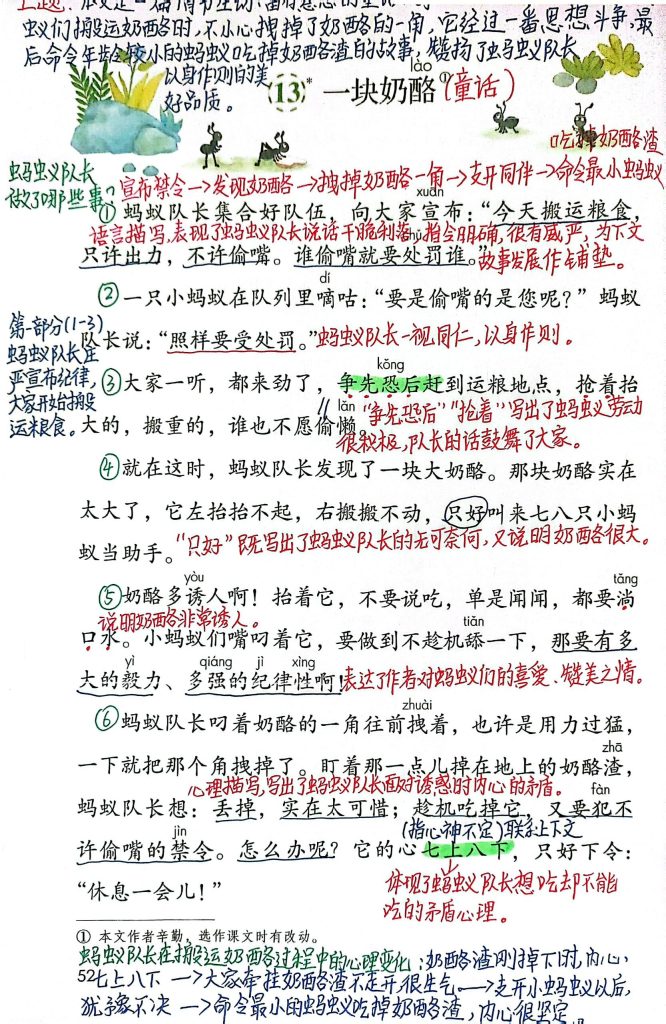 主题：本文是一篇情节生动、富有意思的童话
蚁们搬运奶酪时，不小心拽掉了奶酪的一角，它经过一番思想斗争，最
后命令年龄较小的蚂蚁吃掉奶酪渣的故事，赞扬了蚂蚁队长
以身作则的美
好品质。
lào
13* 一块奶酪①(童话)
吃掉奶酪渣
蚂蚁队长
做了哪些事？
宣布禁令→发现奶酪→拽掉奶酪一角→支开同伴→命令最小蚂蚁
xuān
①蚂蚁队长集合好队伍，向大家宣布：“今天搬运粮食，
语言描写，表现了蚂蚁队长说话干脆利落，指令明确，很有威严，为下文
chǔ
只许出力，不许偷嘴。谁偷嘴就要处罚谁。”
故事发展作铺垫。
dí
②一只小蚂蚁在队列里嘀咕：“要是偷嘴的是您呢？”蚂蚁
队长说：“照样要受处罚。”
蚂蚁队长一视同仁，以身作则。
第一部分(1-3)
蚂蚁队长庄
严宣布纪律，
大家开始搬
运粮食。
kǒng
③大家一听，都来劲了，争先恐后赶到运粮地点，抢着抬
lǎn
“争先恐后”“抢着”写出了蚂蚁劳动
大的，搬重的，谁也不愿偷懒。
很积极，队长的话鼓舞了大家。
④就在这时，蚂蚁队长发现了一块大奶酪。那块奶酪实在
太大了，它左抬抬不起，右搬搬不动，只好叫来七八只小蚂
蚁当助手。
“只好”既写出了蚂蚁队长的无可奈何，又说明奶酪很大。
yòu tǎng
⑤奶酪多诱人啊！抬着它，不要说吃，单是闻闻，都要淌
说明奶酪非常诱人。
tiǎn
口水。小蚂蚁们嘴叼着它，要做到不趁机舔一下，那要有多
yì qiáng jì xìng
大的毅力、多强的纪律性啊！
表达了作者对蚂蚁们的喜爱、赞美之情。
zhuài
⑥蚂蚁队长叼着奶酪的一角往前拽着，也许是用力过猛，
zhā
一下就把那个角拽掉了。盯着那一点儿掉在地上的奶酪渣，
心理描写，写出了蚂蚁队长面对诱惑时内心的矛盾。
fàn
蚂蚁队长想：丢掉，实在太可惜；趁机吃掉它，又要犯不
(指心神不定)联系上下文
jìn
许偷嘴的禁令。怎么办呢？它的心七上八下，只好下令：
“休息一会儿！”
体现了蚂蚁队长想吃却不能
吃的矛盾心理。
① 本文作者辛勤，选作课文时有改动。
蚂蚁队长在搬运奶酪过程中的心理变化：奶酪渣刚掉下时，内心
52
七上八下→大家牵挂奶酪渣不走开，很生气→支开小蚂蚁以后，
犹豫不决→命令最小的蚂蚁吃掉奶酪渣，内心很坚定。